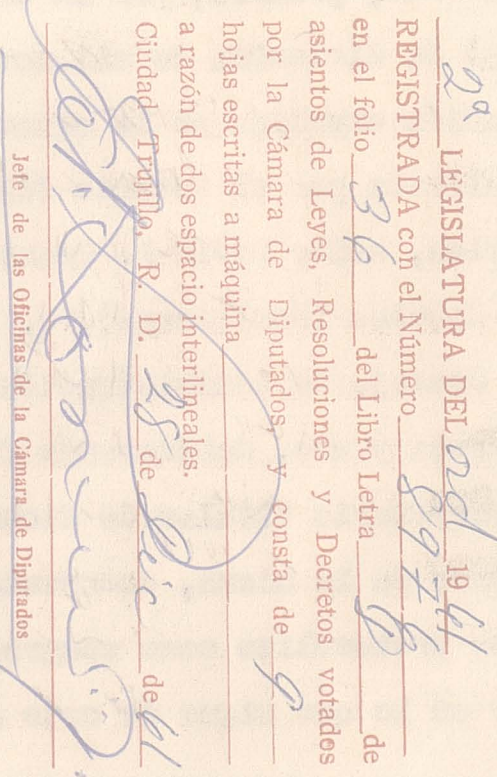 2ª LEGISLATURA DEL ord 1961
REGISTRADA con el Número 8976
en el folio 36 del Libro Letra de
asientos de Leyes, Resoluciones y Decretos votados
por la Cámara de Diputados, y consta de 9
hojas escritas a máquina
a razón de dos espacio interlineales.
Ciudad Trujillo, R. D. 28 de Dic de 61
Jefe de las Oficinas de la Cámara de Diputados